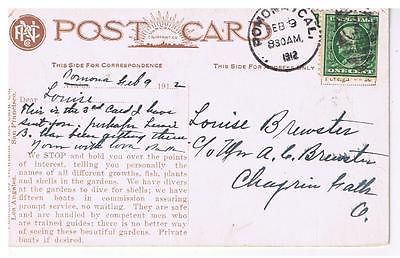 POST CARD
THIS SIDE FOR CORRESPONDENCE
THIS SIDE FOR ADDRESS ONLY
POMONA, CAL.
FEB 9
830 AM
1912
ONE CENT
Pomona Feb 9 1912
Dear Louise
This is the 3rd Card I have
sent you. perhaps
B. has been getting them
Yours with love
We STOP and hold you over the points
of interest, telling you personally the
names of all different growths, fish, plants
and shells in the gardens. We have divers
at the gardens to dive for shells; we have
fifteen boats in commission assuring
prompt service, no waiting. They are safe
and are handled by competent men who
are trained guides; there is no better way
of seeing these beautiful gardens. Private
boats if desired.
Louise Brewster
c/o Wm A. C. Brewster
Chagrin Falls
O.